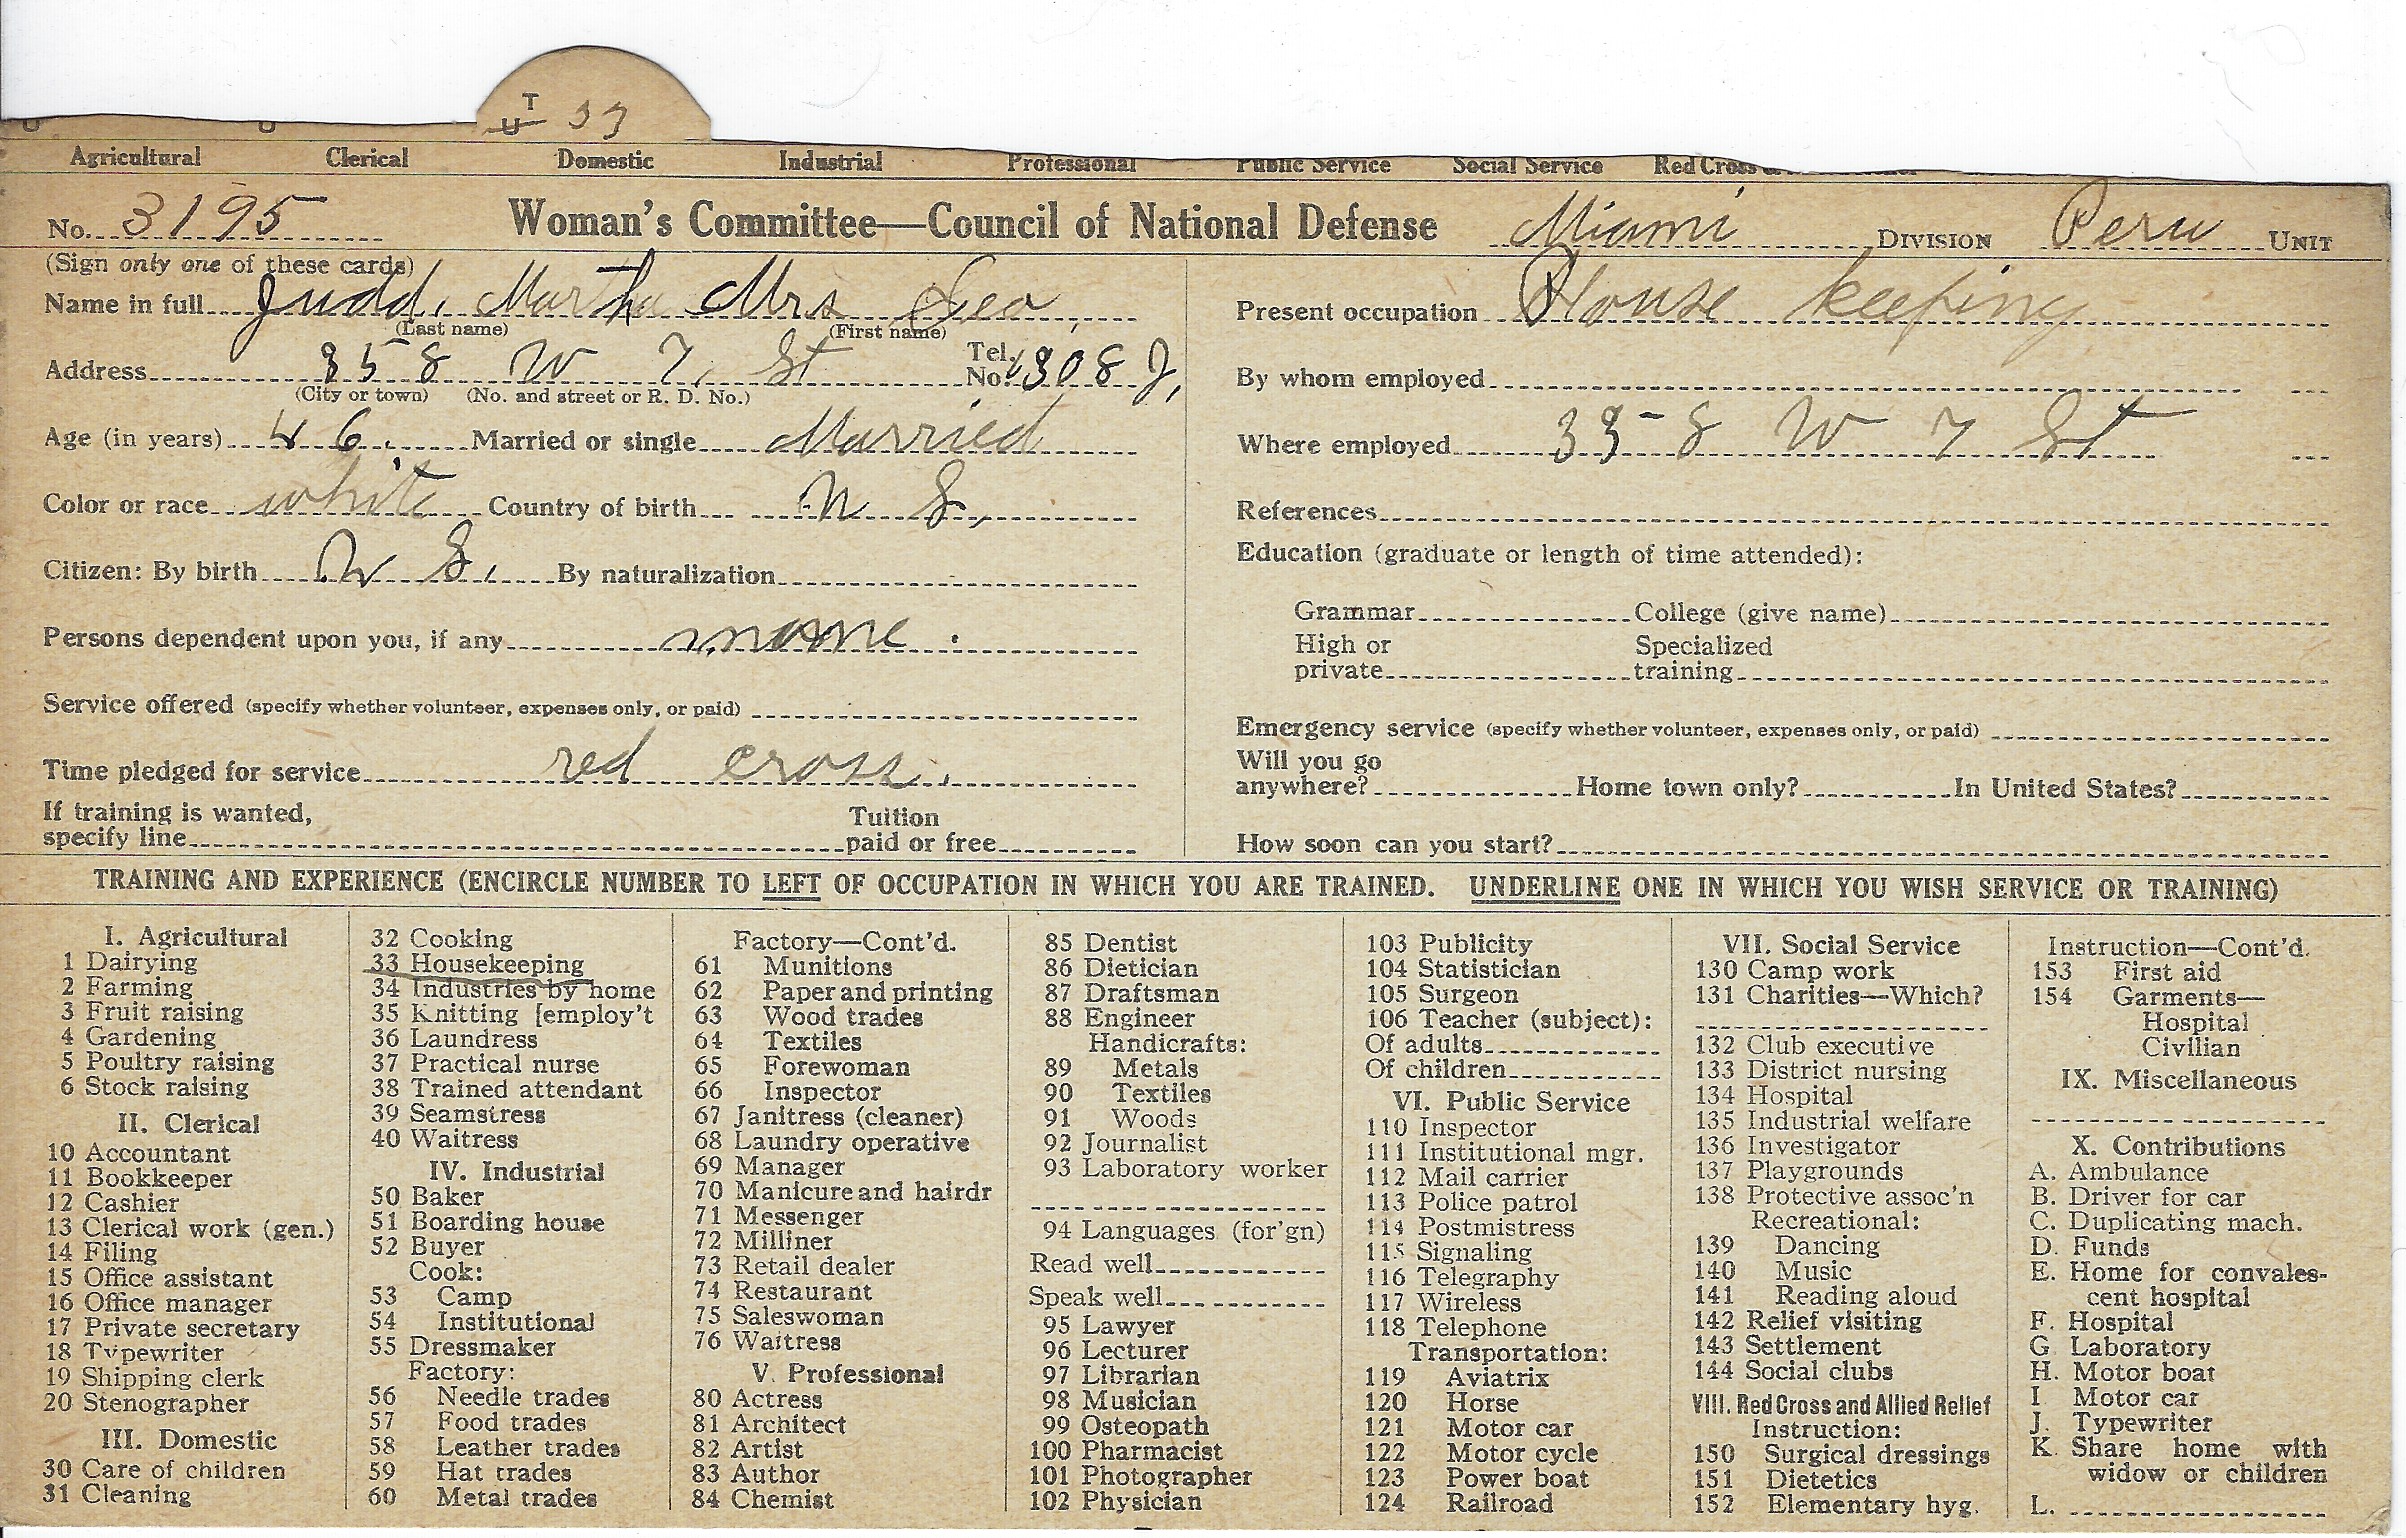 T
U 33
Agricultural Clerical Domestic Industrial Professional Public Service Social Service Red Cross
No. 3195 Woman's Committee—Council of National Defense Miami Division Peru Unit
(Sign only one of these cards)
Name in full Judd, Martha Mrs Geo,
(Last name) (First name)
Address 358 W 7, St Tel. No. 1308 J,
(City or town) (No. and street or R. D. No.)
Age (in years) 46. Married or single Married
Color or race white Country of birth U S,
Citizen: By birth U S, By naturalization
Persons dependent upon you, if any none.
Service offered (specify whether volunteer, expenses only, or paid)
Time pledged for service red cross.
If training is wanted,
specify line Tuition paid or free
Present occupation House keeping
By whom employed
Where employed 358 W 7 St
References
Education (graduate or length of time attended):
Grammar College (give name)
High or private Specialized training
Emergency service (specify whether volunteer, expenses only, or paid)
Will you go
anywhere? Home town only? In United States?
How soon can you start?
TRAINING AND EXPERIENCE (ENCIRCLE NUMBER TO LEFT OF OCCUPATION IN WHICH YOU ARE TRAINED. UNDERLINE ONE IN WHICH YOU WISH SERVICE OR TRAINING)
I. Agricultural
1 Dairying
2 Farming
3 Fruit raising
4 Gardening
5 Poultry raising
6 Stock raising
II. Clerical
10 Accountant
11 Bookkeeper
12 Cashier
13 Clerical work (gen.)
14 Filing
15 Office assistant
16 Office manager
17 Private secretary
18 Typewriter
19 Shipping clerk
20 Stenographer
III. Domestic
30 Care of children
31 Cleaning
32 Cooking
33 Housekeeping
34 Industries by home
35 Knitting [employ't
36 Laundress
37 Practical nurse
38 Trained attendant
39 Seamstress
40 Waitress
IV. Industrial
50 Baker
51 Boarding house
52 Buyer
Cook:
53 Camp
54 Institutional
55 Dressmaker
Factory:
56 Needle trades
57 Food trades
58 Leather trades
59 Hat trades
60 Metal trades
Factory—Cont'd.
61 Munitions
62 Paper and printing
63 Wood trades
64 Textiles
65 Forewoman
66 Inspector
67 Janitress (cleaner)
68 Laundry operative
69 Manager
70 Manicure and hairdr
71 Messenger
72 Milliner
73 Retail dealer
74 Restaurant
75 Saleswoman
76 Waitress
V. Professional
80 Actress
81 Architect
82 Artist
83 Author
84 Chemist
85 Dentist
86 Dietician
87 Draftsman
88 Engineer
Handicrafts:
89 Metals
90 Textiles
91 Woods
92 Journalist
93 Laboratory worker
94 Languages (for'gn)
Read well
Speak well
95 Lawyer
96 Lecturer
97 Librarian
98 Musician
99 Osteopath
100 Pharmacist
101 Photographer
102 Physician
103 Publicity
104 Statistician
105 Surgeon
106 Teacher (subject):
Of adults
Of children
VI. Public Service
110 Inspector
111 Institutional mgr.
112 Mail carrier
113 Police patrol
114 Postmistress
115 Signaling
116 Telegraphy
117 Wireless
118 Telephone
Transportation:
119 Aviatrix
120 Horse
121 Motor car
122 Motor cycle
123 Power boat
124 Railroad
VII. Social Service
130 Camp work
131 Charities—Which?
132 Club executive
133 District nursing
134 Hospital
135 Industrial welfare
136 Investigator
137 Playgrounds
138 Protective assoc'n
Recreational:
139 Dancing
140 Music
141 Reading aloud
142 Relief visiting
143 Settlement
144 Social clubs
VIII. Red Cross and Allied Relief
Instruction:
150 Surgical dressings
151 Dietetics
152 Elementary hyg.
Instruction—Cont'd.
153 First aid
154 Garments—
Hospital
Civilian
IX. Miscellaneous
X. Contributions
A. Ambulance
B. Driver for car
C. Duplicating mach.
D. Funds
E. Home for convales-
cent hospital
F. Hospital
G Laboratory
H. Motor boat
I Motor car
J. Typewriter
K Share home with
widow or children
L.